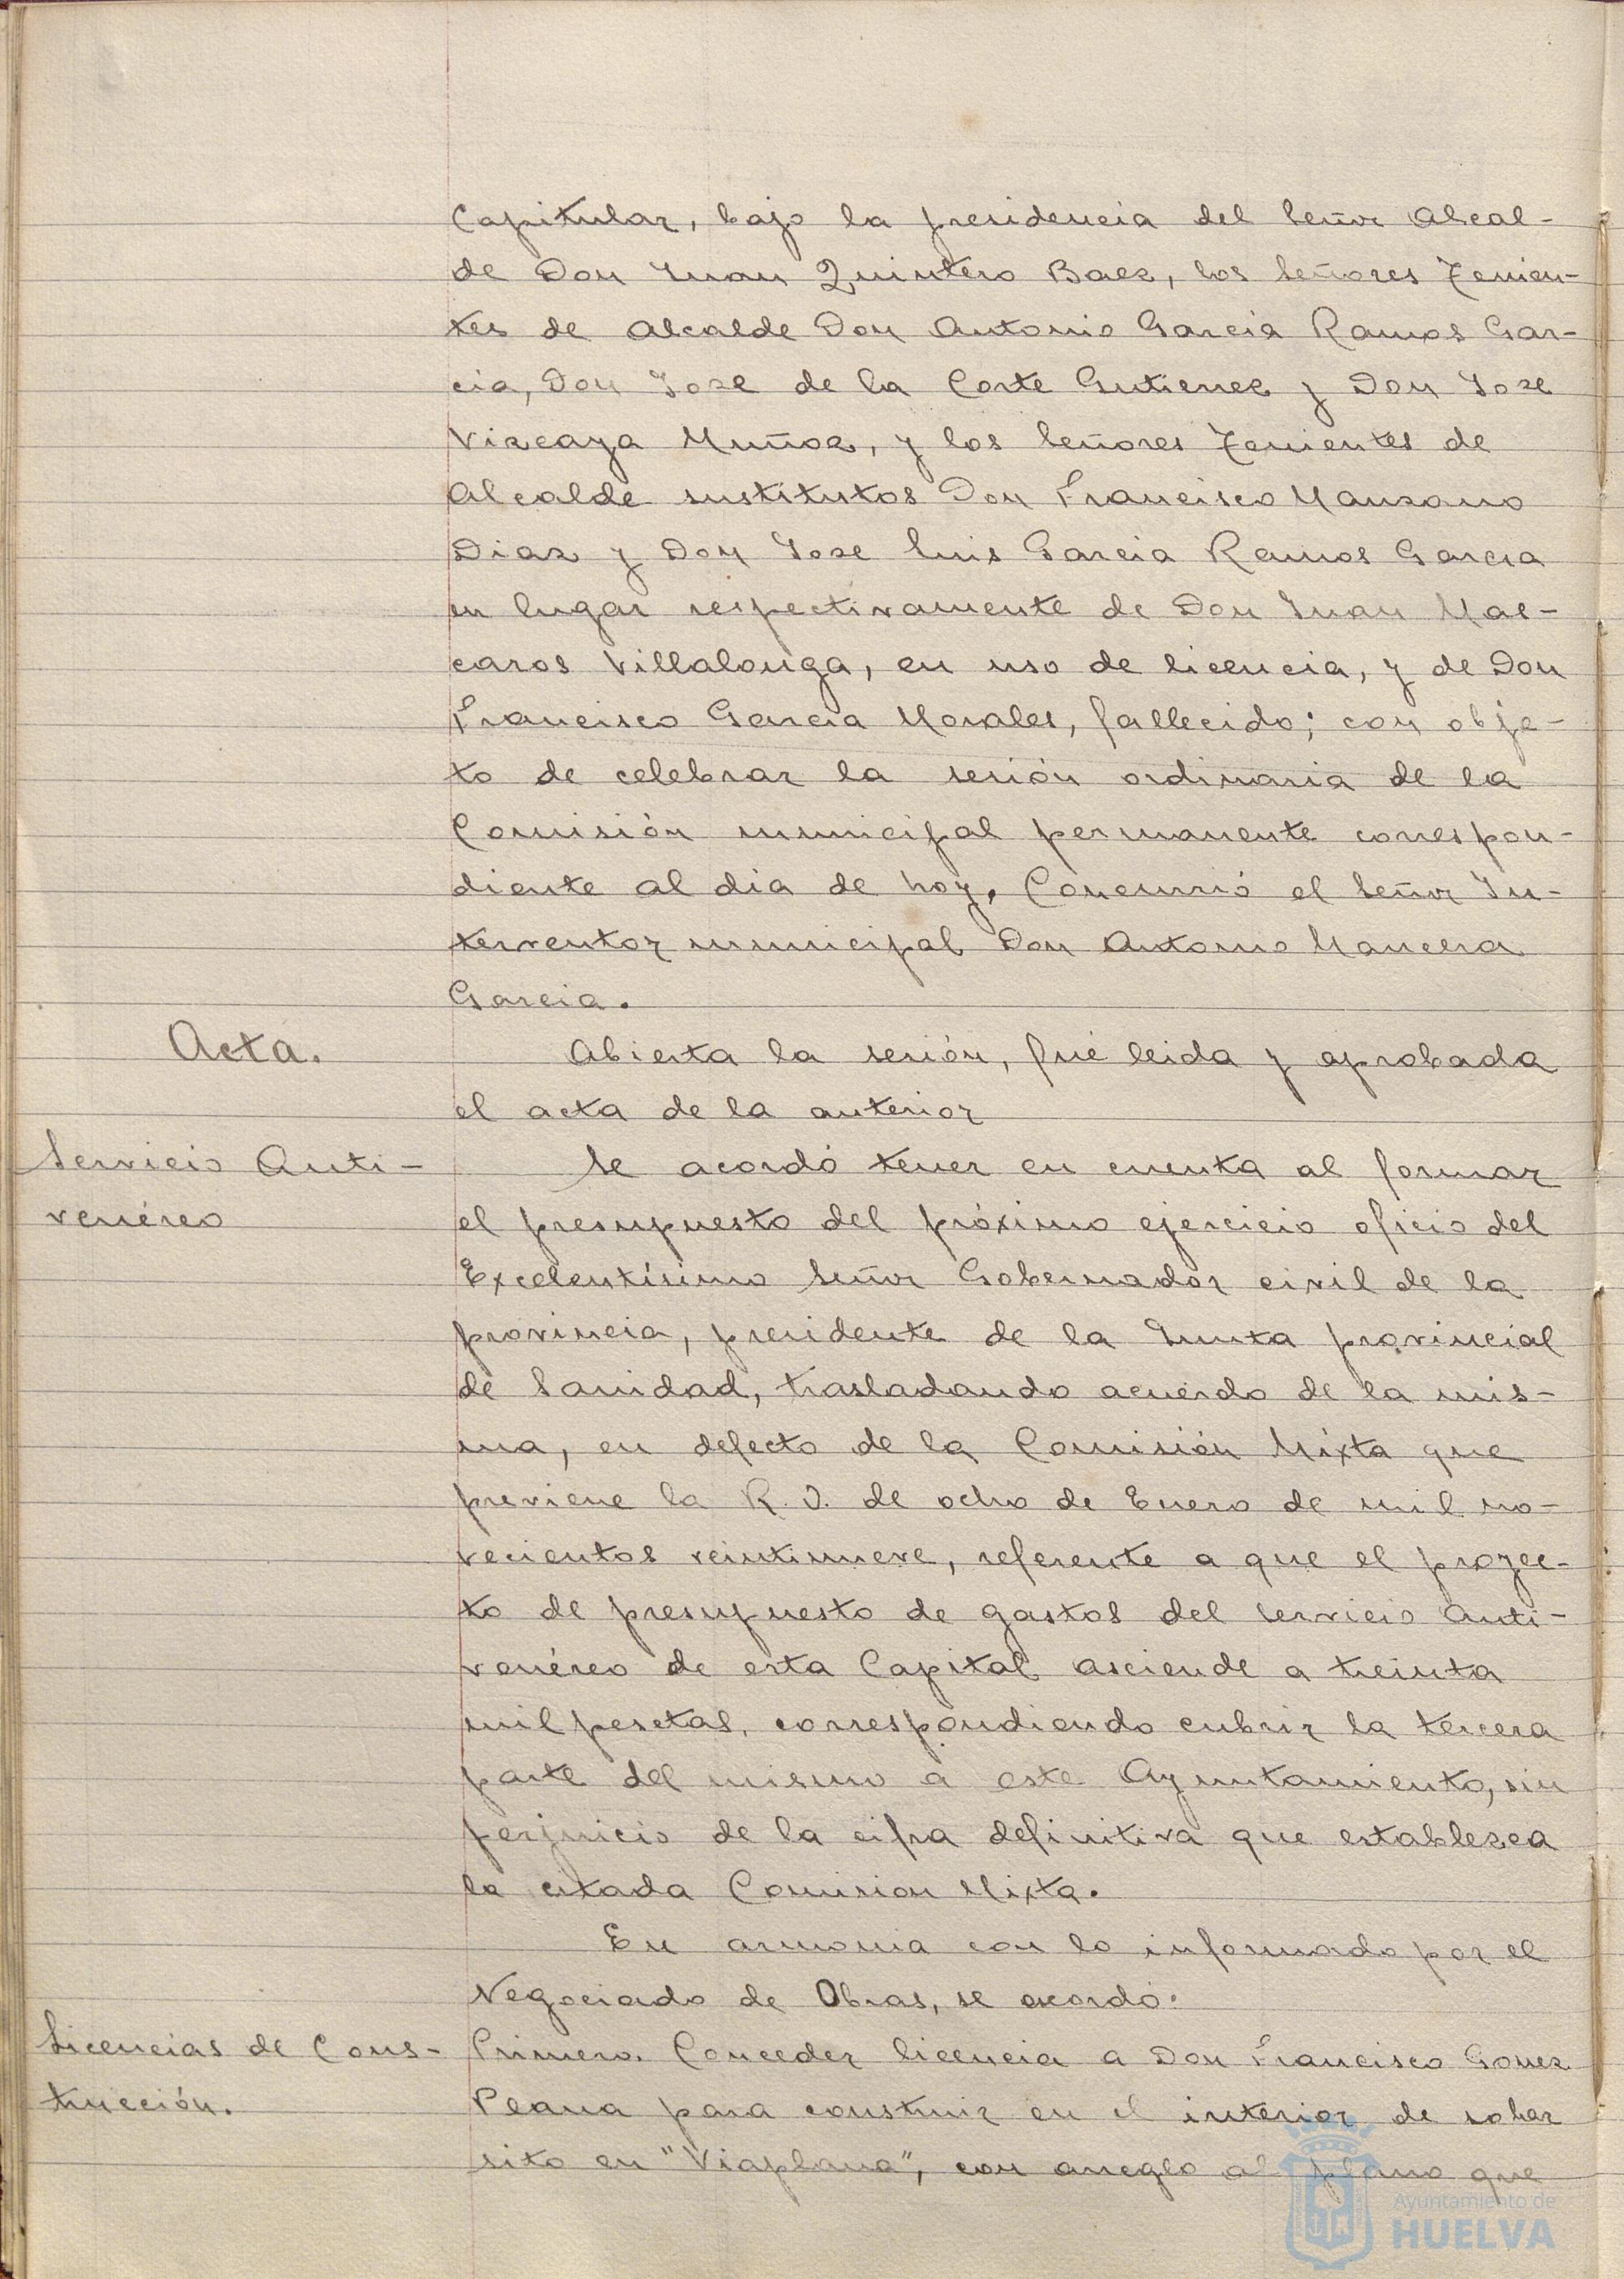 Capitular, bajo la presidencia del Señor Alcal-
de Don Juan Quintero Baez, los Señores Tenien-
tes de Alcalde Don Antonio Garcia Ramos Gar-
cia, Don Jose de la Corte Gutierrez y Don Jose
Vizcaya Muñoz, y los Señores Tenientes de
Alcalde sustitutos Don Francisco Manzano
Diaz y Don Jose Luis Garcia Ramos Garcia
en lugar respectivamente de Don Juan Mas-
caros Villalonga, en uso de licencia, y de Don
Francisco Garcia Morales, fallecido; con obje-
to de celebrar la sesión ordinaria de la
Comisión municipal permanente correspon-
diente al dia de hoy. Concurrió el Señor In-
terventor municipal Don Antonio Mancera
Garcia.
Acta.
Abierta la sesión, fué leida y aprobada
el acta de la anterior
Servicio Anti-
venéreo
Se acordó tener en cuenta al formar
el presupuesto del próximo ejercicio oficio del
Excelentísimo Señor Gobernador civil de la
provincia, presidente de la Junta provincial
de Sanidad, trasladando acuerdo de la mis-
ma, en defecto de la Comisión Mixta que
previene la R. O. de ocho de Enero de mil no-
vecientos veintinueve, referente a que el proyec-
to de presupuesto de gastos del servicio Anti-
venéreo de esta Capital asciende a treinta
mil pesetas, correspondiendo cubrir la tercera
parte del mismo a este Ayuntamiento, sin
perjuicio de la cifra definitiva que establezca
la citada Comision Mixta.
En armonia con lo informado por el
Negociado de Obras, se acordó:
Licencias de Cons-
trucción.
Primero. Conceder licencia a Don Francisco Gomez
Peana para construir en el interior de solar
sito en "Viaplana", con arreglo al plano que
Ayuntamiento de
HUELVA